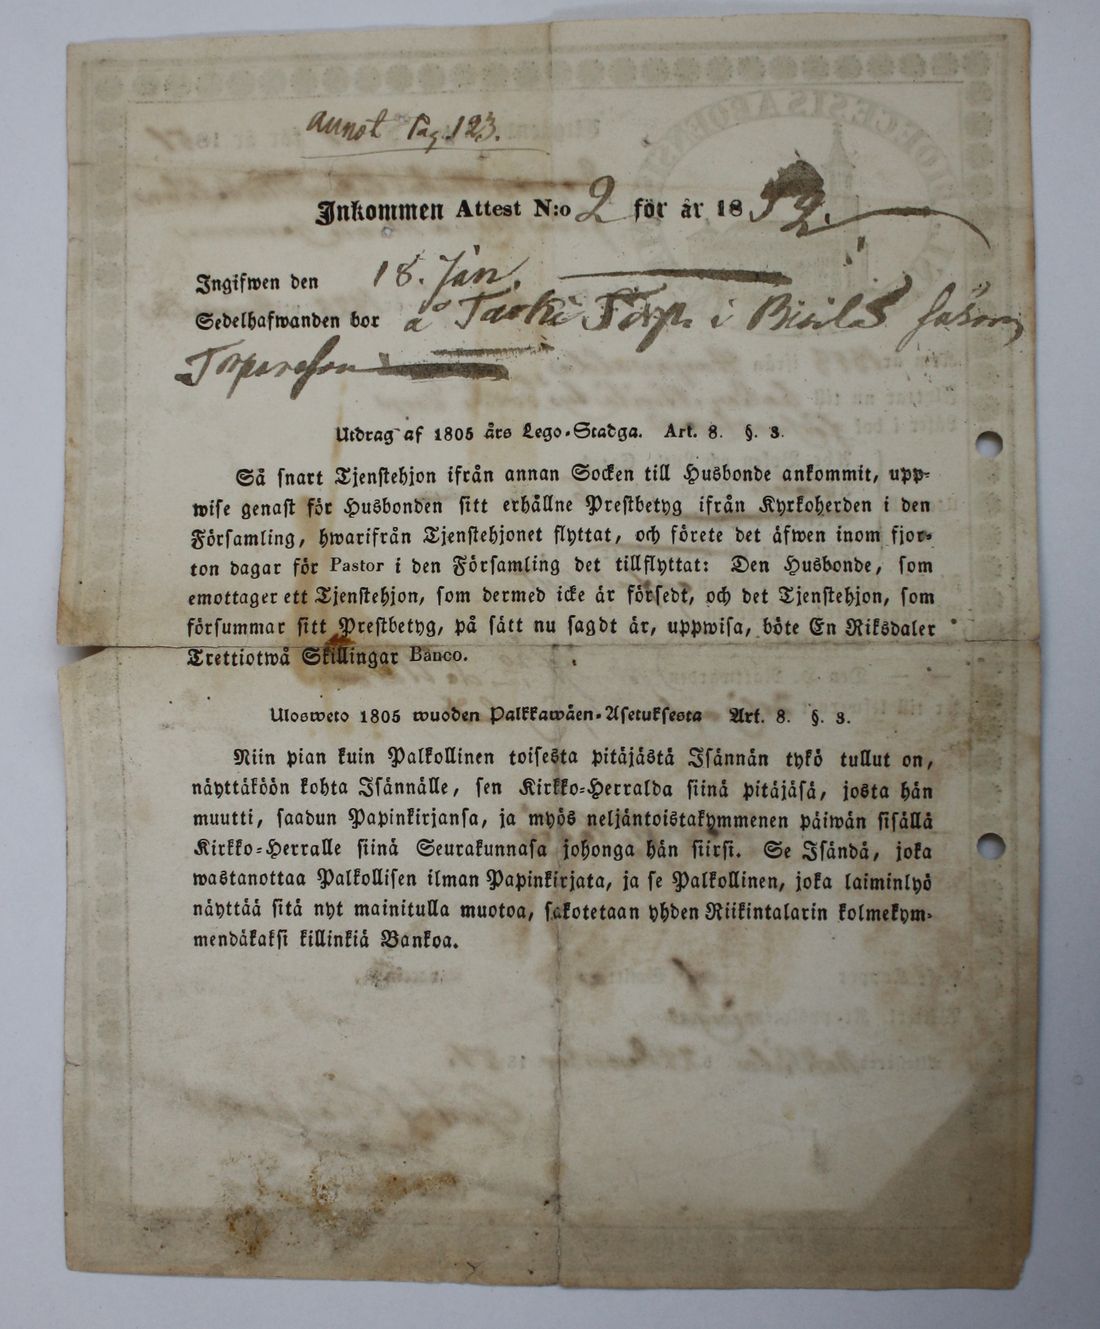 annot Pag. 123.
Inkommen Attest N:o 2 för år 1852.
Ingifwen den 18. Jan.
Sedelhafwanden bor å Torp i såsom
Torpareson
Utdrag af 1805 års Lego-Stadga. Art. 8. §. 3.
Så snart Tjenstehjon ifrån annan Socken till Husbonde ankommit, upp-
wise genast för Husbonden sitt erhållne Prestbetyg ifrån Kyrkoherden i den
Församling, hwarifrån Tjenstehjonet flyttat, och förete det äfwen inom fjor-
ton dagar för Pastor i den Församling det tillflyttat: Den Husbonde, som
emottager ett Tjenstehjon, som dermed icke är försedt, och det Tjenstehjon, som
försummar sitt Prestbetyg, på sätt nu sagdt är, uppwisa, böte En Riksdaler
Trettiotwå Skillingar Banco.
Ulosweto 1805 wuoden Palkkawäen-Asetuksesta Art. 8. §. 3.
Niin pian kuin Palkollinen toisesta pitäjästä Isännän tykö tullut on,
näyttäköön kohta Isännälle, sen Kirkko-Herralda siinä pitäjäsä, josta hän
muutti, saadun Papinkirjansa, ja myös neljäntoistakymmenen päiwän sisällä
Kirkko-Herralle siinä Seurakunnasa johonga hän siirsi. Se Isändä, joka
wastanottaa Palkollisen ilman Papinkirjata, ja se Palkollinen, joka laiminlyö
näyttää sitä nyt mainitulla muotoa, sakotetaan yhden Riikintalarin kolmekym-
mendäkaksi killinkiä Bankoa.